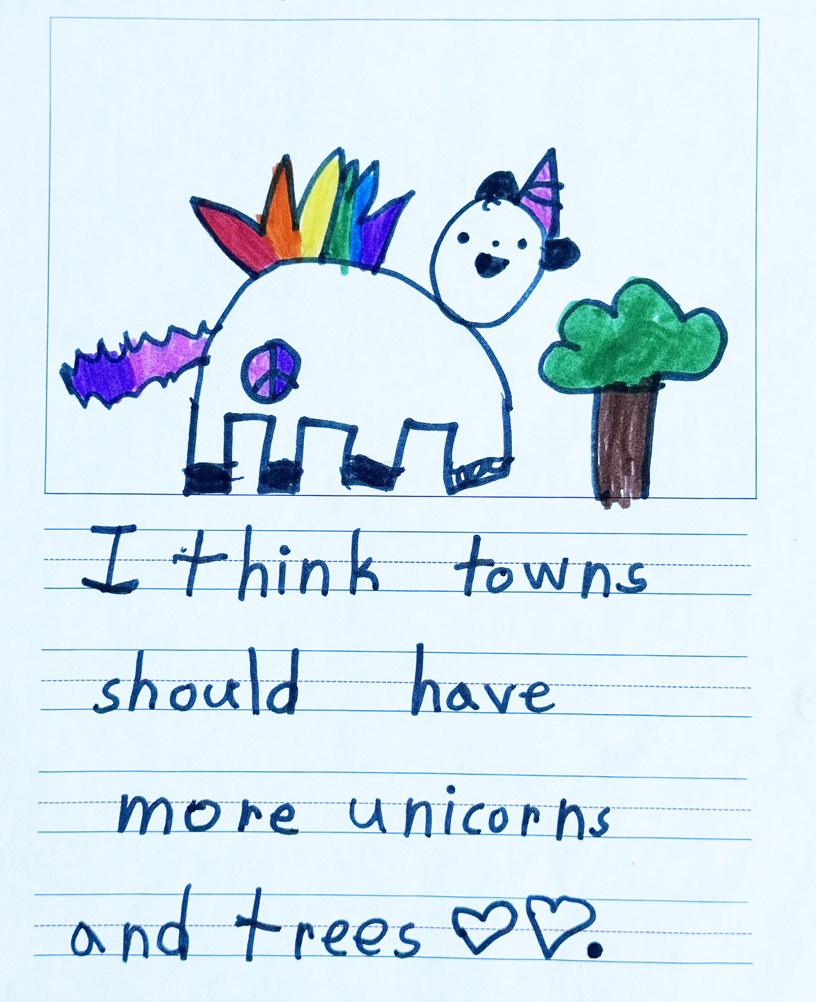 I think towns
should have
more unicorns
and trees ♡♡.